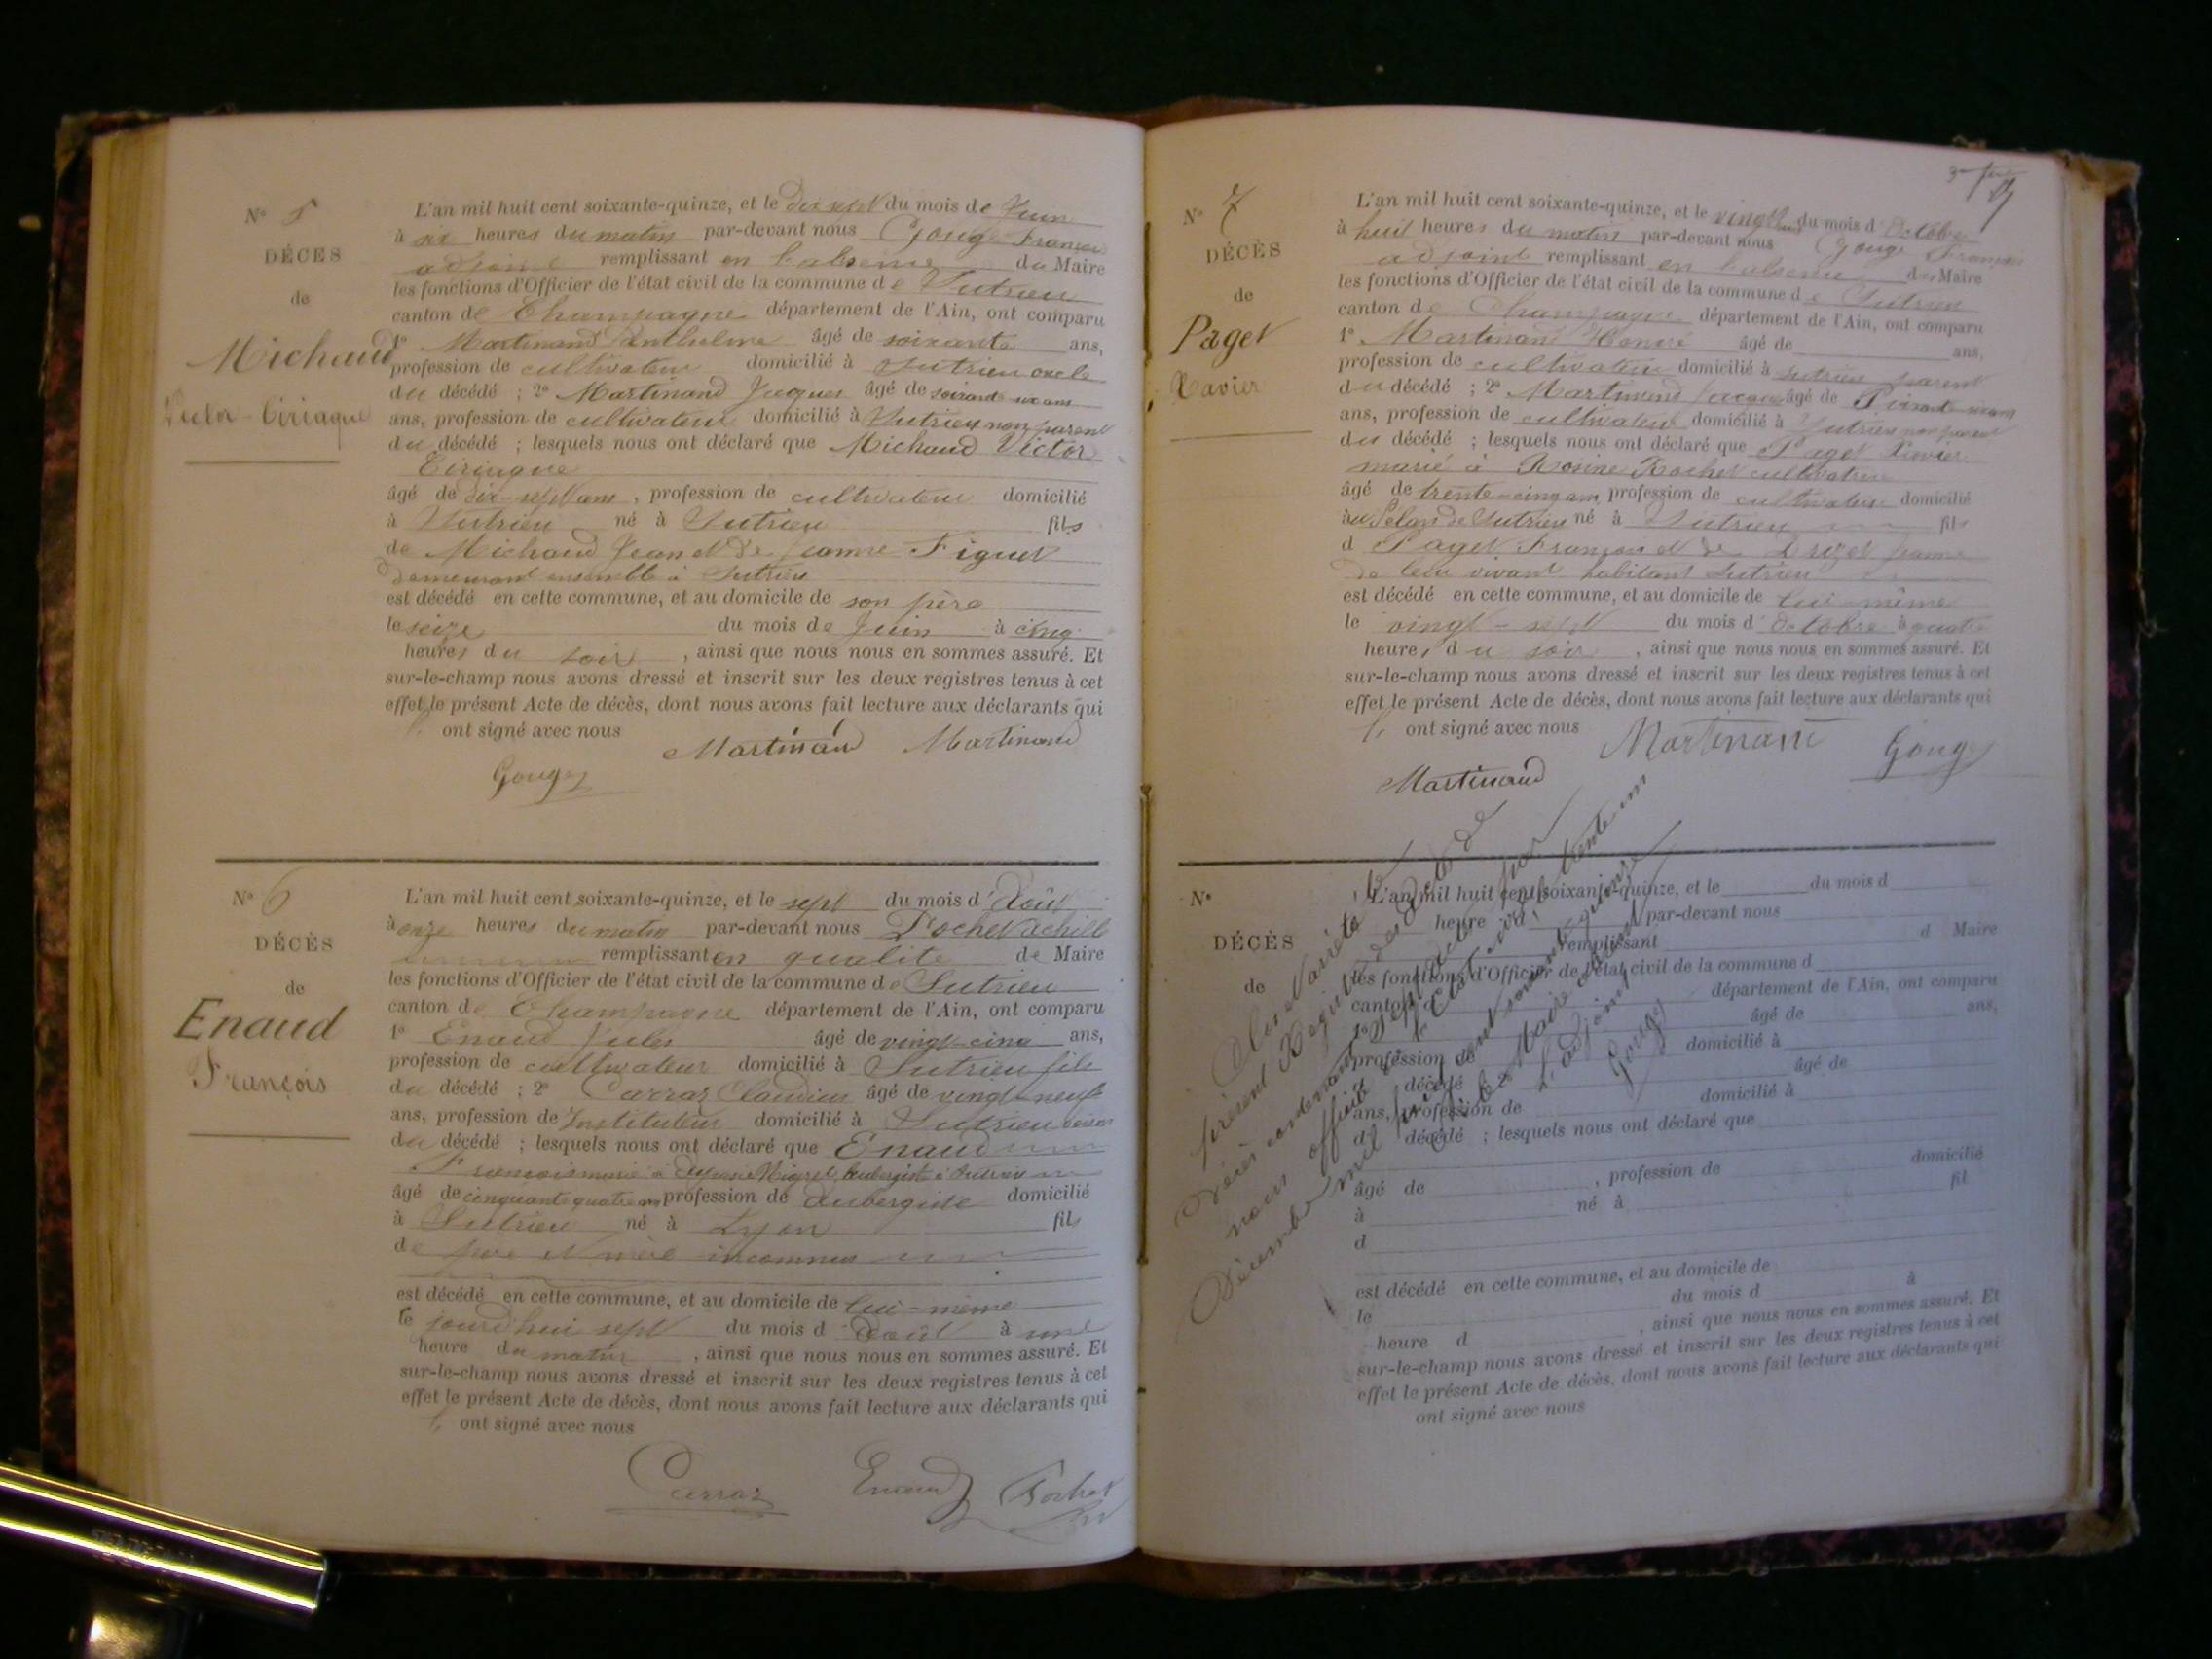 N° 5
DÉCÈS
de
Michaud
Victor-Ciriaque
L'an mil huit cent soixante-quinze, et le dix sept du mois de Juin
à six heures du matin par-devant nous Gouge François
adjoint remplissant en l'absence du Maire
les fonctions d'Officier de l'état civil de la commune de Sutrieu
canton de Champagne département de l'Ain, ont comparu
1° Martinand âgé de soixante ans,
profession de cultivateur domicilié à Sutrieu oncle
du décédé ; 2° Martinand Jacques âgé de soixante
ans, profession de cultivateur domicilié à Sutrieu non parent
du décédé ; lesquels nous ont déclaré que Michaud Victor
Ciriaque
âgé de dix-sept ans, profession de cultivateur domicilié
à Sutrieu né à Sutrieu fils
de Michaud Jean et de Jeanne Figuet
demeurant ensemble à Sutrieu
est décédé en cette commune, et au domicile de son père
le seize du mois de Juin à cinq
heures du soir, ainsi que nous nous en sommes assuré. Et
sur-le-champ nous avons dressé et inscrit sur les deux registres tenus à cet
effet le présent Acte de décès, dont nous avons fait lecture aux déclarants qui
ont signé avec nous
Martinand Martinand
Gouge
N° 6
DÉCÈS
de
Enaud
François
L'an mil huit cent soixante-quinze, et le sept du mois d'Août
à onze heures du matin par-devant nous Rochet Achille
remplissant en qualité de Maire
les fonctions d'Officier de l'état civil de la commune de Sutrieu
canton de Champagne département de l'Ain, ont comparu
1° Enaud Jules âgé de vingt-cinq ans,
profession de cultivateur domicilié à Sutrieu fils
du décédé ; 2° Carraz Claudius âgé de vingt-neuf
ans, profession de Instituteur domicilié à Sutrieu voisin
du décédé ; lesquels nous ont déclaré que Enaud
François marié à aubergiste à Sutrieu
âgé de cinquante quatre ans profession de aubergiste domicilié
à Sutrieu né à Lyon fils
de père et mère inconnus
est décédé en cette commune, et au domicile de lui-même
le jourd'hui sept du mois d'août à une
heure du matin, ainsi que nous nous en sommes assuré. Et
sur-le-champ nous avons dressé et inscrit sur les deux registres tenus à cet
effet le présent Acte de décès, dont nous avons fait lecture aux déclarants qui
ont signé avec nous
Carraz Enaud Rochet
N° 7
DÉCÈS
de
Paget
Xavier
L'an mil huit cent soixante-quinze, et le vingt du mois d'Octobre
à huit heures du matin par-devant nous Gouge François
adjoint remplissant en l'absence du Maire
les fonctions d'Officier de l'état civil de la commune de Sutrieu
canton de Champagne département de l'Ain, ont comparu
1° Martinand Honoré âgé de ans,
profession de cultivateur domicilié à Sutrieu parent
du décédé ; 2° Martinand Jacques âgé de
ans, profession de cultivateur domicilié à Sutrieu non parent
du décédé ; lesquels nous ont déclaré que Paget Xavier
marié à Rosine Rochet cultivatrice
âgé de trente-cinq ans, profession de cultivateur domicilié
au de Sutrieu né à Sutrieu fils
d Paget François et de Jeanne
vivant habitant Sutrieu
est décédé en cette commune, et au domicile de lui-même
le vingt-sept du mois d'Octobre à quatre
heures du soir, ainsi que nous nous en sommes assuré. Et
sur-le-champ nous avons dressé et inscrit sur les deux registres tenus à cet
effet le présent Acte de décès, dont nous avons fait lecture aux déclarants qui
ont signé avec nous
Martinand Gouge
Martinand
N°
DÉCÈS
de
L'an mil huit cent soixante-quinze, et le du mois d
heure d par-devant nous
remplissant d Maire
les fonctions d'Officier de l'état civil de la commune d
canton d département de l'Ain, ont comparu
1° âgé de ans,
profession de domicilié à
d décédé ; 2° âgé de
ans, profession de domicilié à
d décédé ; lesquels nous ont déclaré que
âgé de , profession de domicilié
à né à fil
d
est décédé en cette commune, et au domicile de
le du mois d à
heure d , ainsi que nous nous en sommes assuré. Et
sur-le-champ nous avons dressé et inscrit sur les deux registres tenus à cet
effet le présent Acte de décès, dont nous avons fait lecture aux déclarants qui
ont signé avec nous
Clos et arrêté le
présent Registre des actes de
Décès contenant sept actes par
nous officier de l'état civil trente un
Décembre mil huit cent soixante quinze
Le Maire absent
L'adjoint
Gouge